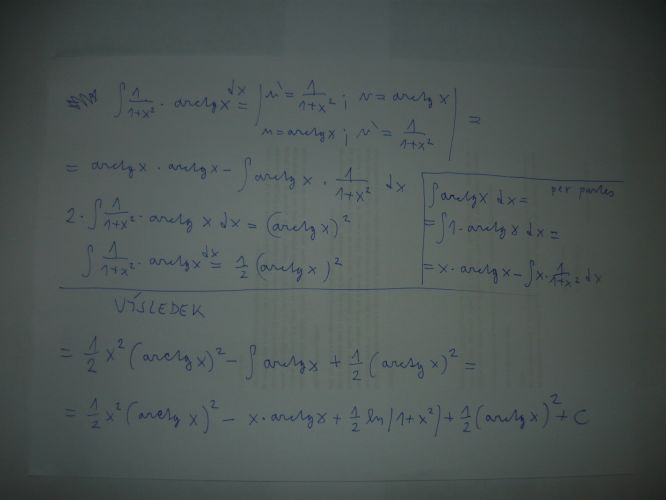 ∫ 1/(1+x²) · arctg x dx = | u' = 1/(1+x²) ; v = arctg x
u = arctg x ; v' = 1/(1+x²) | =
= arctg x · arctg x - ∫ arctg x · 1/(1+x²) dx
2 · ∫ 1/(1+x²) · arctg x dx = (arctg x)²
∫ 1/(1+x²) · arctg x dx = 1/2 (arctg x)²
∫ arctg x dx = per partes
= ∫ 1 · arctg x dx =
= x · arctg x - ∫ x · 1/(1+x²) dx
VÝSLEDEK
= 1/2 x² (arctg x)² - ∫ arctg x + 1/2 (arctg x)² =
= 1/2 x² (arctg x)² - x · arctg x + 1/2 ln |1+x²| + 1/2 (arctg x)² + C